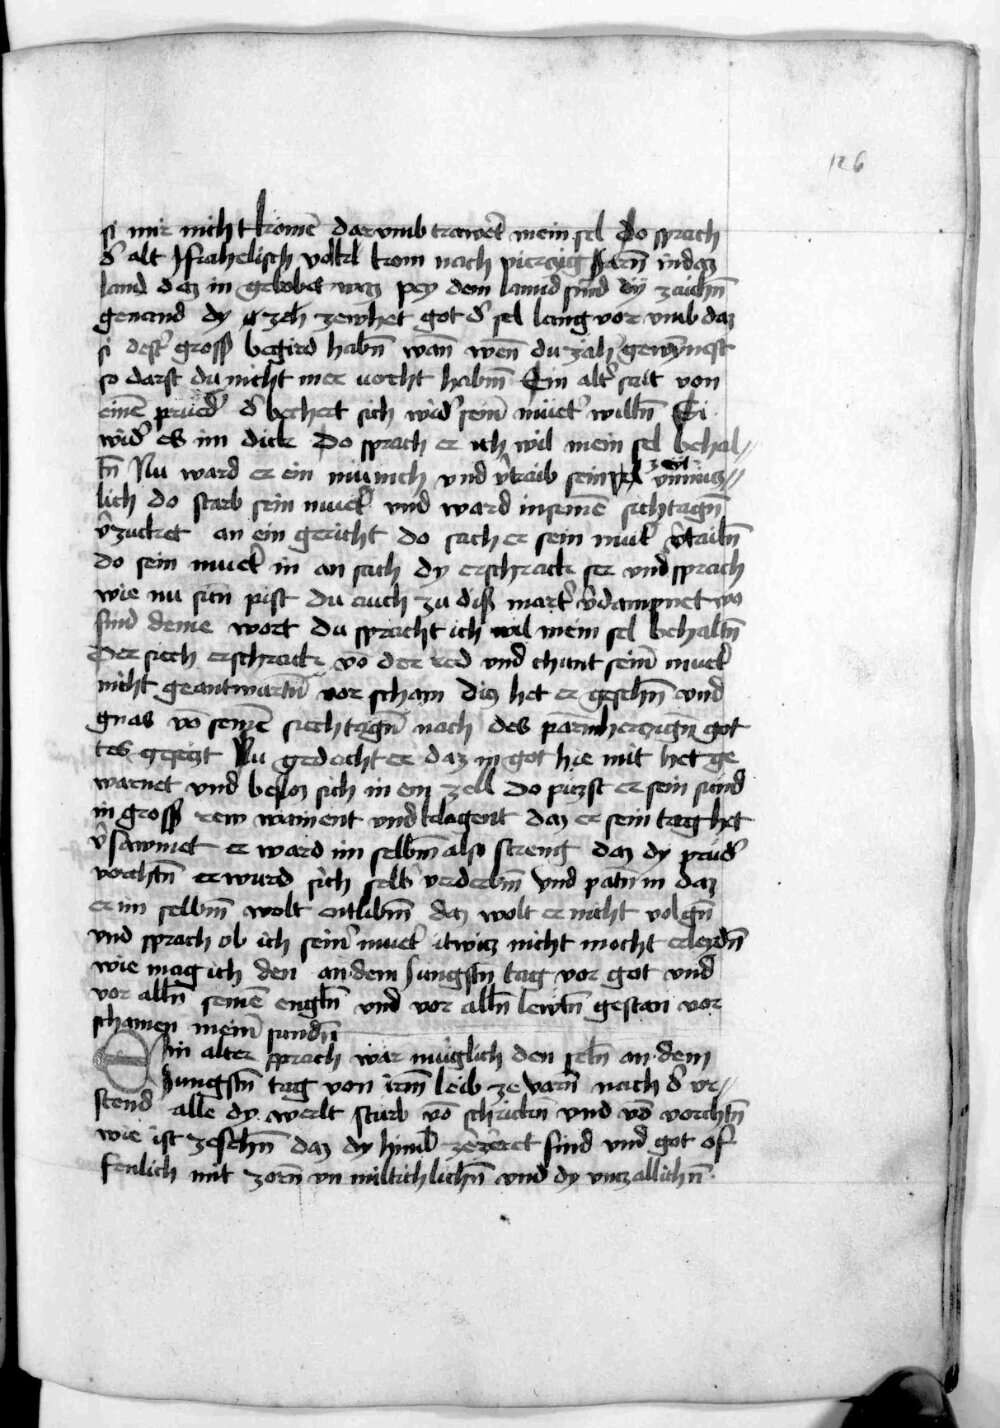 126
si mir nicht komē darvmb trawrt mein sel do sprach
d' alt Jsrahelisch volkl kom nach vierczig Jarn in daz
land daz in gelobet waz pey dem lannd sind dy zaichn̄
genand dy zeh zewhet got d' sel lang vor vmb daz
si dest' gross begird habn̄ wan̄ wen̄ du zäh' gewy̆nest
so darft du nicht mer vorcht habm̄ Ein alt' seit von
einē prued' d' bechert sich wid' sein' muet' willn̄ Si
wid' es im dick Do sprach er ich wil mein sel behal-
tn̄ Nu ward er ein munich vnd v'traib sein zeit vnnucz-
lich do starb sein muet' vnd ward in seinē sichtagn̄
v'zucket an ein gericht do sach er sein mut' v'tailn̄
do sein muet' in an sach dy erschrack ser vnd sprach
wie nu sun pist du auch zu diss mart' v'dampnet wo
sind deine wort du spracht ich wil mein sel behaltn̄
Der siech erschrack vō der red vnd chunt sein' muet'
nicht geantwurtn̄ vor scham diz het er gesehn̄ vnd
gnas vō seinē siechtagn̄ nach des parmherczign̄ got
tes gesetzt Nu gedacht er daz in got hie mit het ge
warnet vnd besloz sich in ein zell Do puezst er sein sund
in gross' rew wainent vnd klagent daz er sein tag het
v'sawmet er ward im selbm̄ also streng daz dy prud'
vorchtn̄ er wurd sich selb' verderbm̄ vnd patn̄ in daz
er im selbm̄ wolt entlibm̄ daz wolt er nicht volgn̄
vnd sprach ob ich sein' muet' itwicz nicht mocht erleydn̄
wie mag ich den an dem Jungstn̄ tag vor got vnd
vor alln̄ seinē engln̄ vnd vor alln̄ lewtn̄ gestan vor
schamen mein' sundn̄
Ein alter sprach wär muglich den seln̄ an dem
Jungstn̄ tag von irm̄ leib ze varn̄ nach d' vr-
stend alle dy werlt sturb vō schrickn̄ vnd vō vorchtn̄
wie ist zesehn̄ daz dy himel zezeret sind vnd got of
fenlich mit zorn vn miltichlichn̄ vnd dy vnczallichn̄